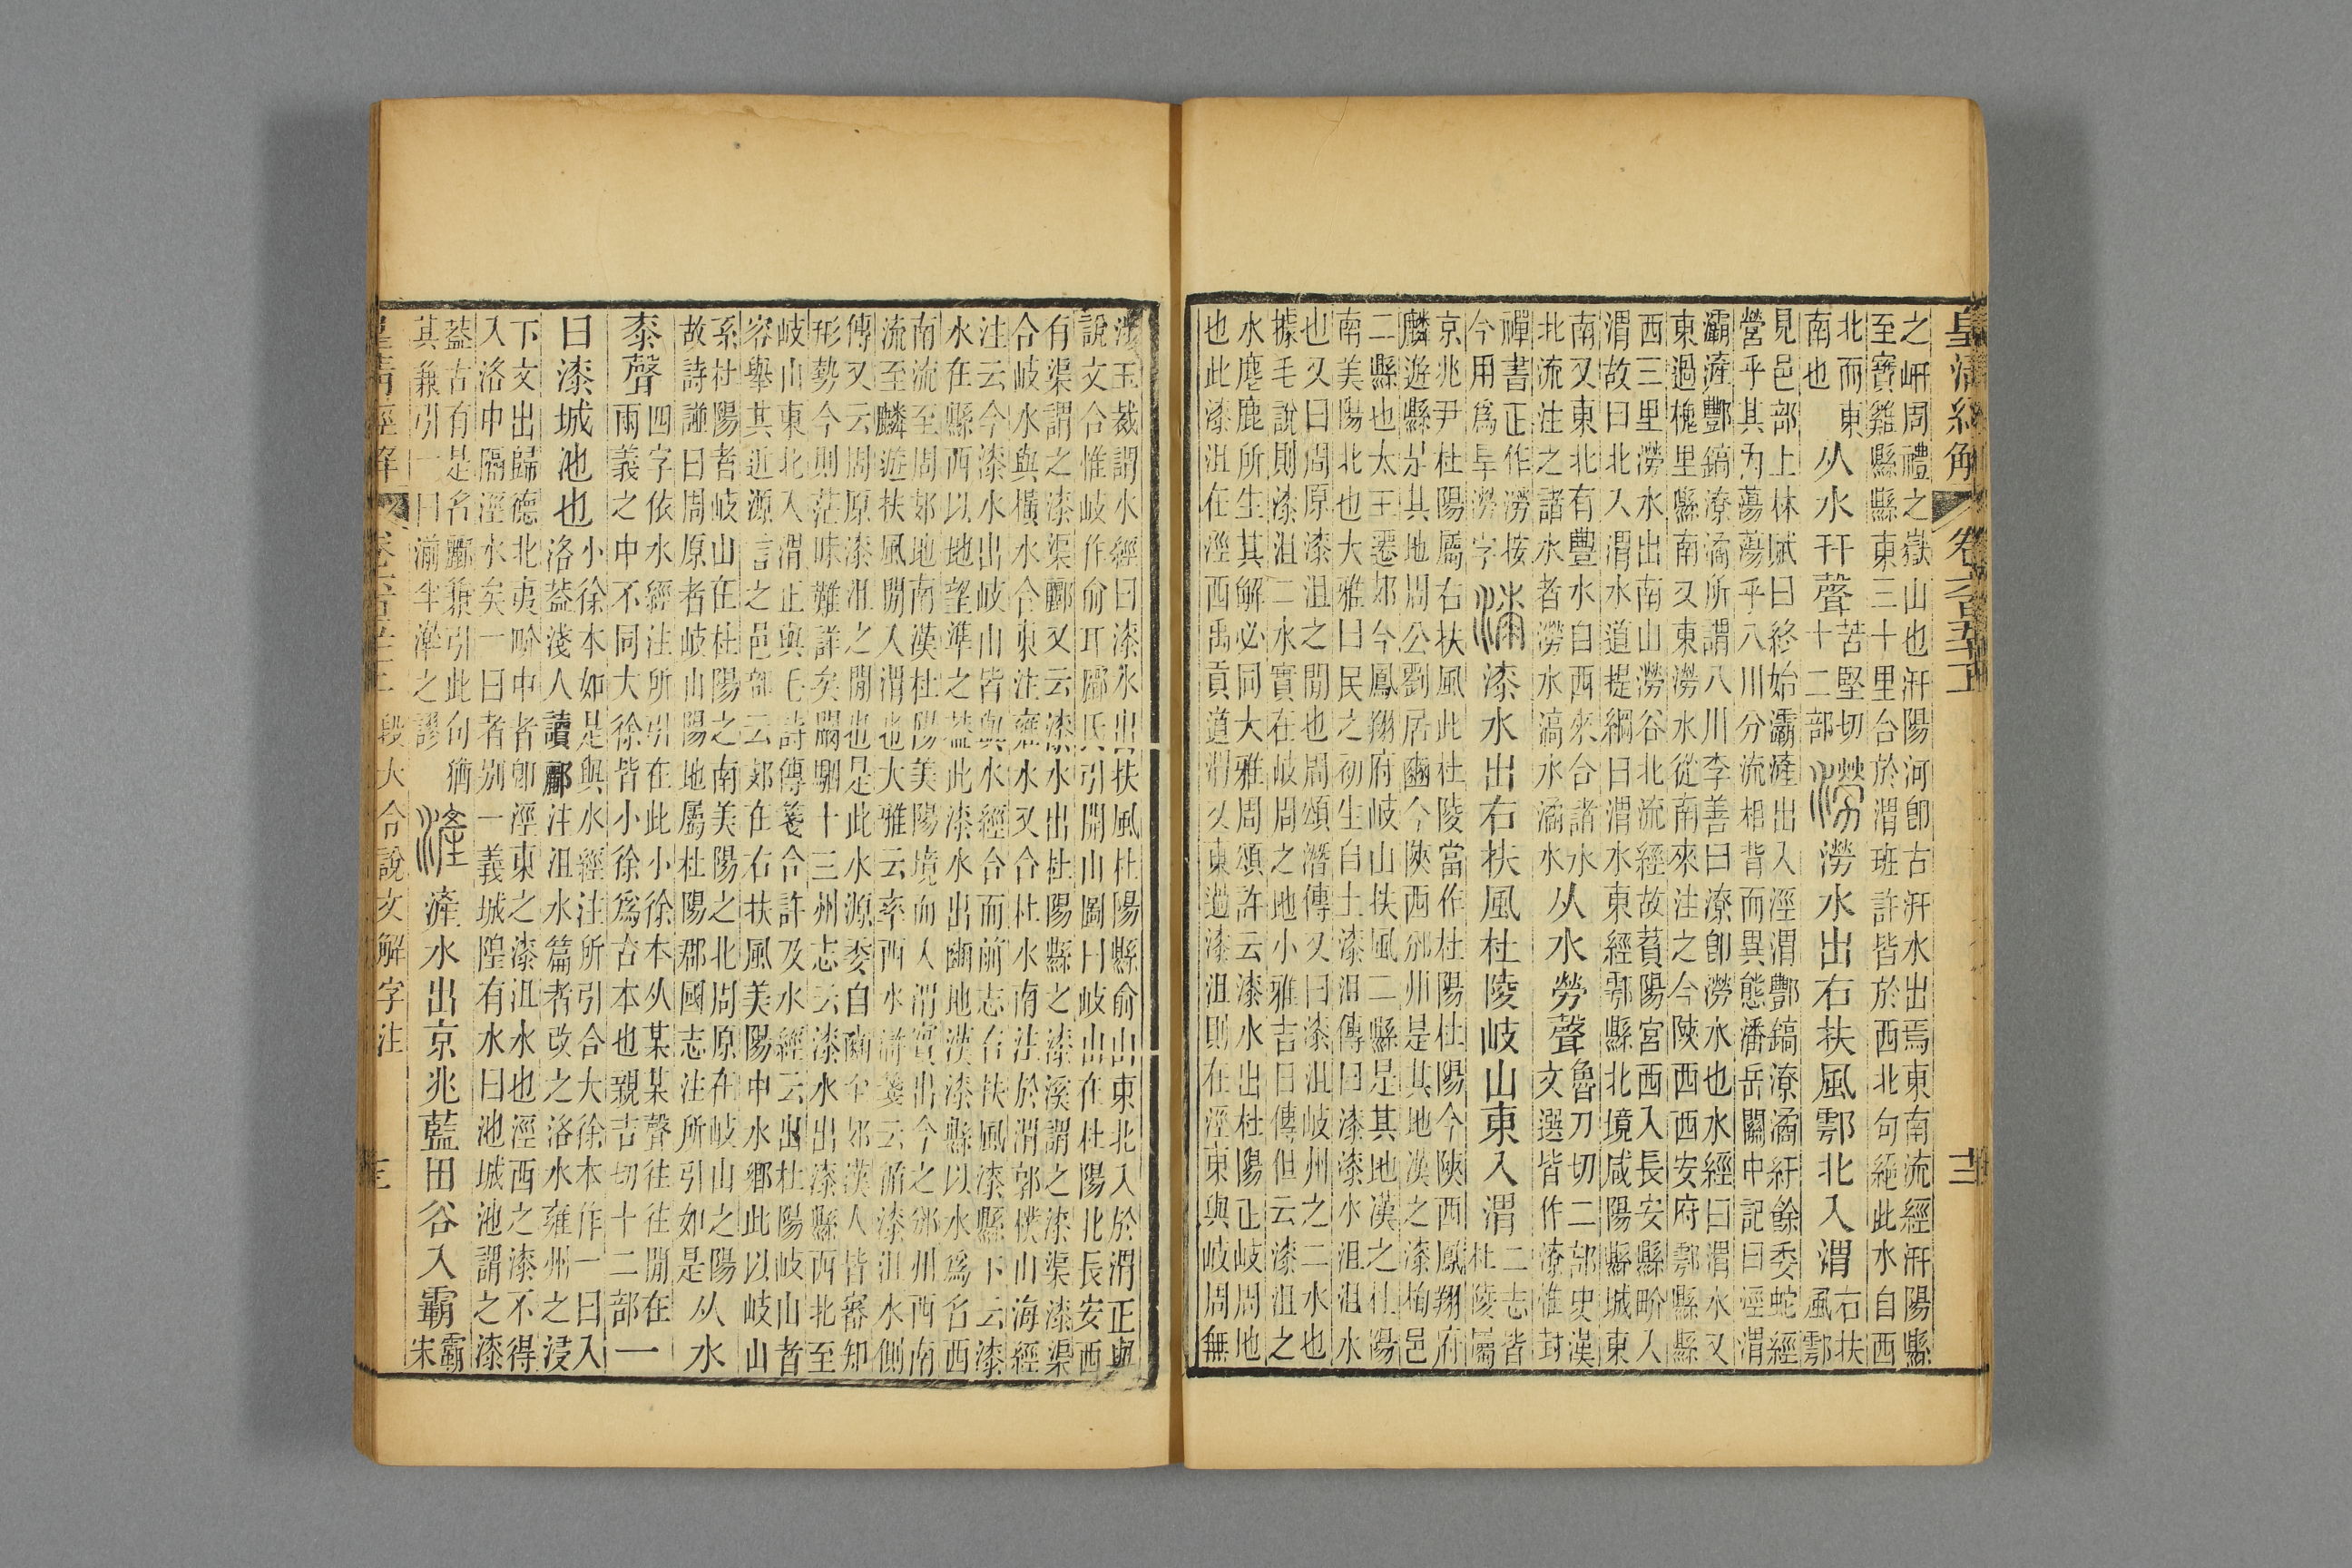 皇清經解
卷六百五十一
三
之岍周禮之嶽山也汧陽河卽古汧水出焉東南流經汧陽縣
至寶雞縣縣東三十里台於渭班許皆於西北句絕此水自西
北而東
南也
从水幵聲
苦堅切
十二部
澇水出右扶風鄠北入渭
右扶
風鄠
見邑部上林賦曰終始灞滻出入涇渭酆鎬潦潏紆餘委蛇經
營乎其內蕩蕩乎八川分流相背而異態潘岳關中記曰涇渭
灞滻酆鎬潦潏所謂八川李善曰潦卽澇水也水經曰渭水又
東過槐里縣南又東澇水從南來注之今陝西西安府鄠縣縣
西三里澇水出南山澇谷北流經故萯陽宮西入長安縣畍入
渭故曰北入渭水道提綱曰渭水東經鄠縣北境咸陽縣城東
南又東北有豐水自西南來合諸水
北流注之諸水者澇水滈水潏水
从水勞聲
魯刀切二部史漢
文選皆作潦惟封
禪書正作澇按
今用爲旱澇字
漆水出右扶風杜陵岐山東入渭
二志皆
杜陵屬
京兆尹杜陽屬右扶風此杜陵當作杜陽杜陽今陝西鳳翔府
麟遊縣是其地周公劉居豳今陝西邠州是其地漢之漆栒邑
二縣也大王遷郊今鳳翔府岐山扶風二縣是其地漢之杜陽
南美陽北也大雅曰民之初生自土漆沮傳曰漆漆水沮沮水
也又曰周原漆沮之閒也周頌潛傳又曰漆沮岐州之二水也
據毛說則漆沮二水實在岐周之地小雅吉日傳但云漆沮之
水麀鹿所生其解必同大雅周頌許云漆水出杜陽正岐周地
也此漆沮在涇西禹貢道渭又東過漆沮則在涇東與岐周無
涉玉裁謂水經曰漆水出扶風杜陽縣俞山東北入於渭正與
說文合惟岐作俞耳酈氏引開山圖曰岐山在杜陽北長安西
有渠謂之漆渠酈又云漆水出杜陽縣之漆溪謂之漆渠漆渠
合岐水與橫水合東注雍水又合杜水南注於渭郭樸山海經
注云今漆水出岐山皆與水經合而前志右扶風漆縣下云漆
水在縣西以地望準之葢此漆水出豳地漢漆縣以水爲名西
南流至周郊地南漢杜陽美陽境而入渭實出今之邠州西南
流至麟遊扶風閒入渭也大雅云率西水滸箋云循漆沮水側
傳又云周原漆沮之閒也是此水源委自豳至郊漢人皆審知
形勢今則茫昧難詳矣闞駰十三州志云漆水出漆縣西北至
岐山東北入渭正與毛詩傳箋合許及水經云出杜陽岐山者
容舉其近源言之邑部云郊在右扶風美陽中水鄉此以岐山
系杜陽者岐山在杜陽之南美陽之北周原在岐山之陽
故詩譜曰周原者岐山陽地屬杜陽郡國志注所引如是
从水
桼聲
四字依水經注所引在此小徐本从某某聲往往閒在
兩義之中不同大徐皆小徐爲古本也親吉切十二部
一
曰漆城池也
小徐本如是與水經注所引合大徐本作一曰入
洛葢淺人讀酈注沮水篇者改之洛水雍州之浸
下文出歸德北夷畍中者卽涇東之漆沮水也涇西之漆不得
入洛中隔涇水矣一曰者別一義城隍有水曰池城池謂之漆
葢古有是名酈兼引此句猶
其兼引一曰湔半澣之謬
滻水出京兆藍田谷入霸
霸
宋
皇清經解
卷六百五十一
段大令說文解字注
三